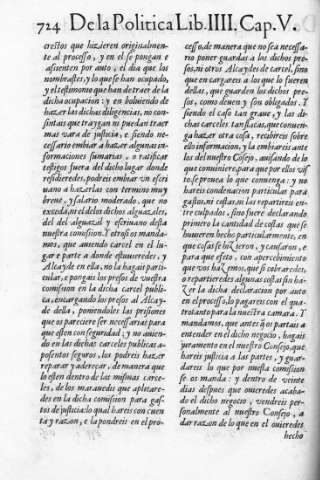 724 De la Politica Lib. IIII. Cap. V.
cretos que hizieren originalmen-
te al processo, y en el se pongan e
assienten por auto, el dia que los
nombrastes, y lo que se han ocupado,
y el testimonio que han de traer de la
dicha ocupacion: y en boluiendo de
hazer los dichas diligencias, no con-
sintais que traygan ni puedan traer
mas vara de justicia, e siendo ne-
cessario embiar a hazer algunas in-
formaciones sumarias, o ratificar
testigos fuera del dicho lugar donde
residieredes, podreis embiar vn escri
uano a hazerlas con termino muy
breue, y salario moderado, que no
exceda, ni el delos dichos alguaziles,
del del alguazil y escriuano desta
nuestra comission. Y otrosi os manda-
mos, que auiendo carcel en el lu-
gar e parte a donde estuuieredes, y
Alcayde en ella, no la hagais parti-
cular, e pongais los presos de vuestra
comission en la dicha carcel publi-
ca, encargando los presos al Alcay-
de della, poniendoles las prisiones
que os pareciere ser necessarias para
que esten con seguridad; y no auien-
do en las dichas carceles publicas a-
posentos seguros, los podreis hazer
reparar y adereçar, de manera que
lo esten dentro de las mismas carce-
les, de los marauedis que aplicare-
des en la dicha comission para gas-
tos de justicia: lo qual hareis con cuen
ta y razon, e la pondreis en el pro-
cesso, de manera que no sea necessa-
rio poner guardas a los dichos pre-
sos, ni otros Alcaydes de carcel, sino
que en cargareis a los que lo fueren
dellas, que guarden los dichos pre-
sos, como deuen y son obligados. Y
siendo el caso tan graue, y las di-
chas carceles tan flacas, que conuen-
ga hazer otra cosa, recibireis sobre
ello informacion, y la embiareis ante
los del nuestro Cõsejo, auisando de lo
que conuiniere, para que por ellos vis
to se prouea lo que conuenga: y no
hareis condenacion particular para
gastos, ni costas: ni las repartireis en-
tre culpados, sino fuere declarando
primero la cantidad de costas que se
huuieren hecho particularmente, en
que cosas se hizieron, y causaron, e
para que efeto, con apercebimiento
que vos hazemos, que si cobraredes,
o repartieredes algunas costas sin ha-
zer la dicha declaracion por auto
en el processo, lo pagareis con el qua-
trotanto para la nuestra camara. Y
mandamos, que antes q̃ os partais a
entender en el dicho negocio, hagais
juramento en el nuestro Consejo, que
hareis justicia a las partes, y guar-
dareis lo que por nuestra comission
se os manda: y dentro de veinte
dias despues que ouieredes acaba-
do el dicho negocio, vendreis per-
sonalmente al nuestro Consejo, a
dar razon de lo que en el ouieredes
hecho